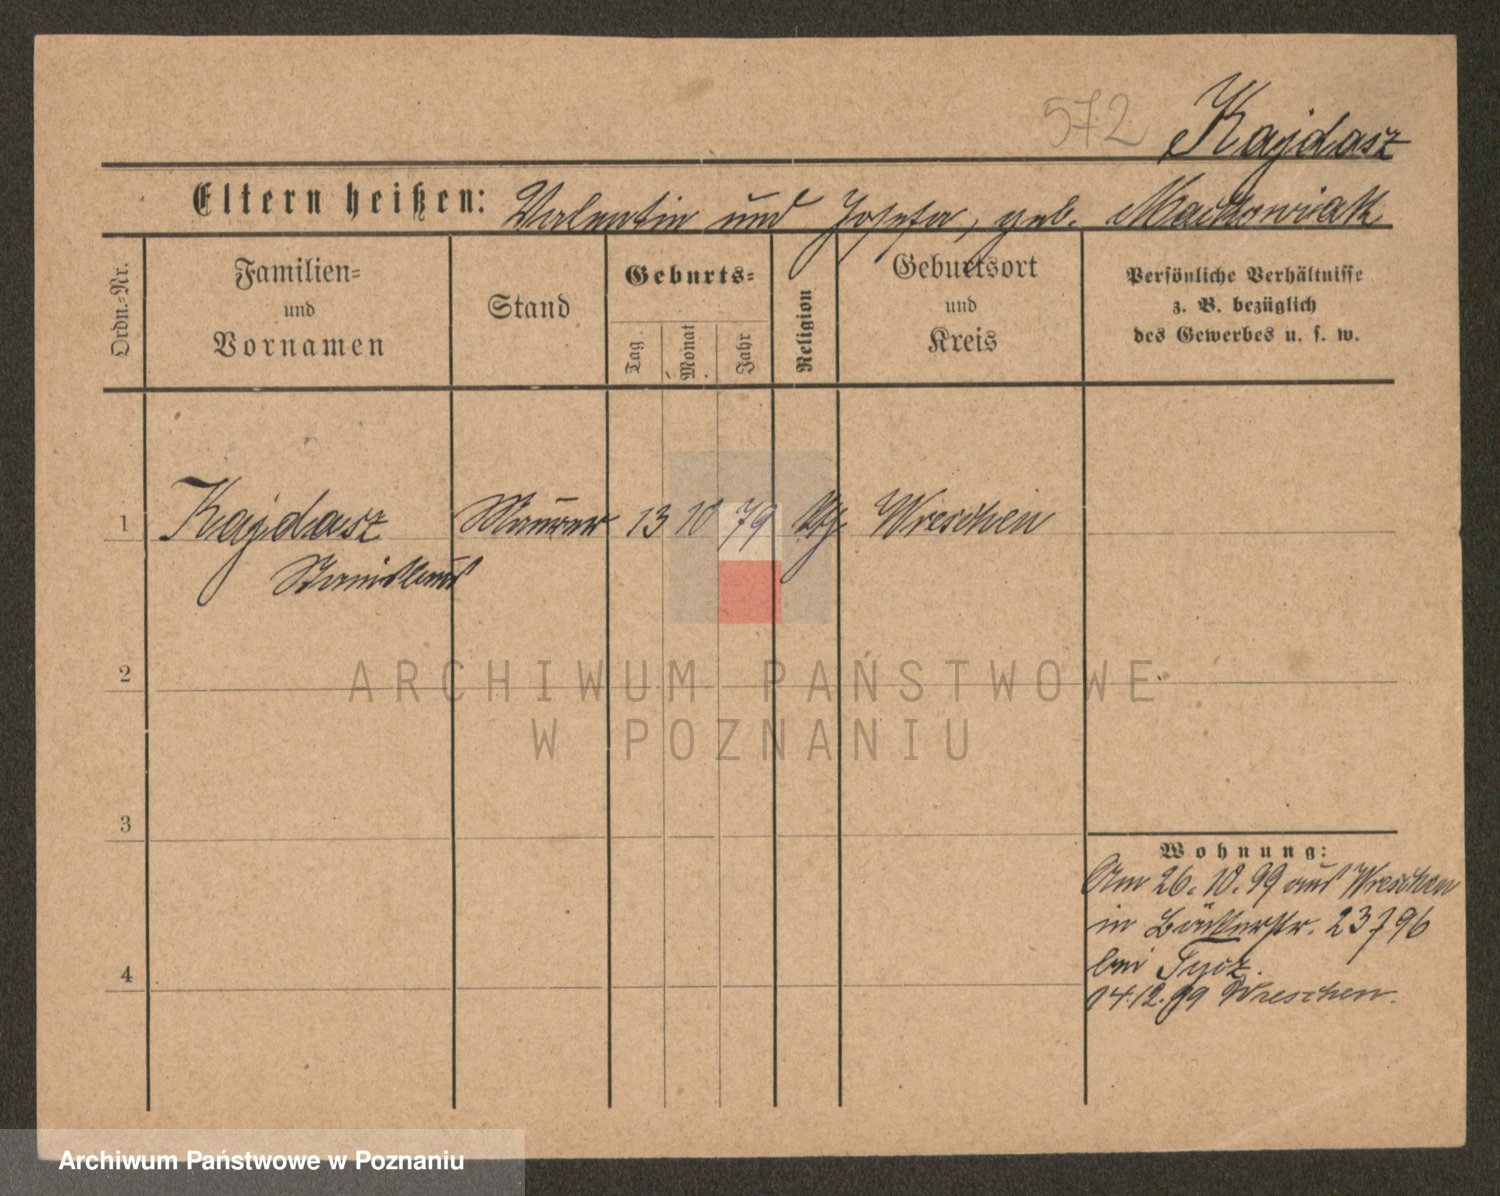 572 Kajdasz
Eltern heißen: Valentin und Josefa, geb. Maćkowiak
Ordn.=Nr.
Familien=
und
Vornamen
Stand
Geburts=
Tag.
Monat
Jahr
Religion
Geburtsort
und
Kreis
Persönliche Verhältnisse
z. B. bezüglich
des Gewerbes u. s. w.
1 Kajdasz Maurer 13 10 79 Wreschen
Stanislaus
2
ARCHIWUM PAŃSTWOWE
W POZNANIU
3
Wohnung:
Am 26. 10. 99 aus Wreschen
in Bäckerstr. 23796
bei Tycz.
14.12.99 Wreschen.
4
Archiwum Państwowe w Poznaniu